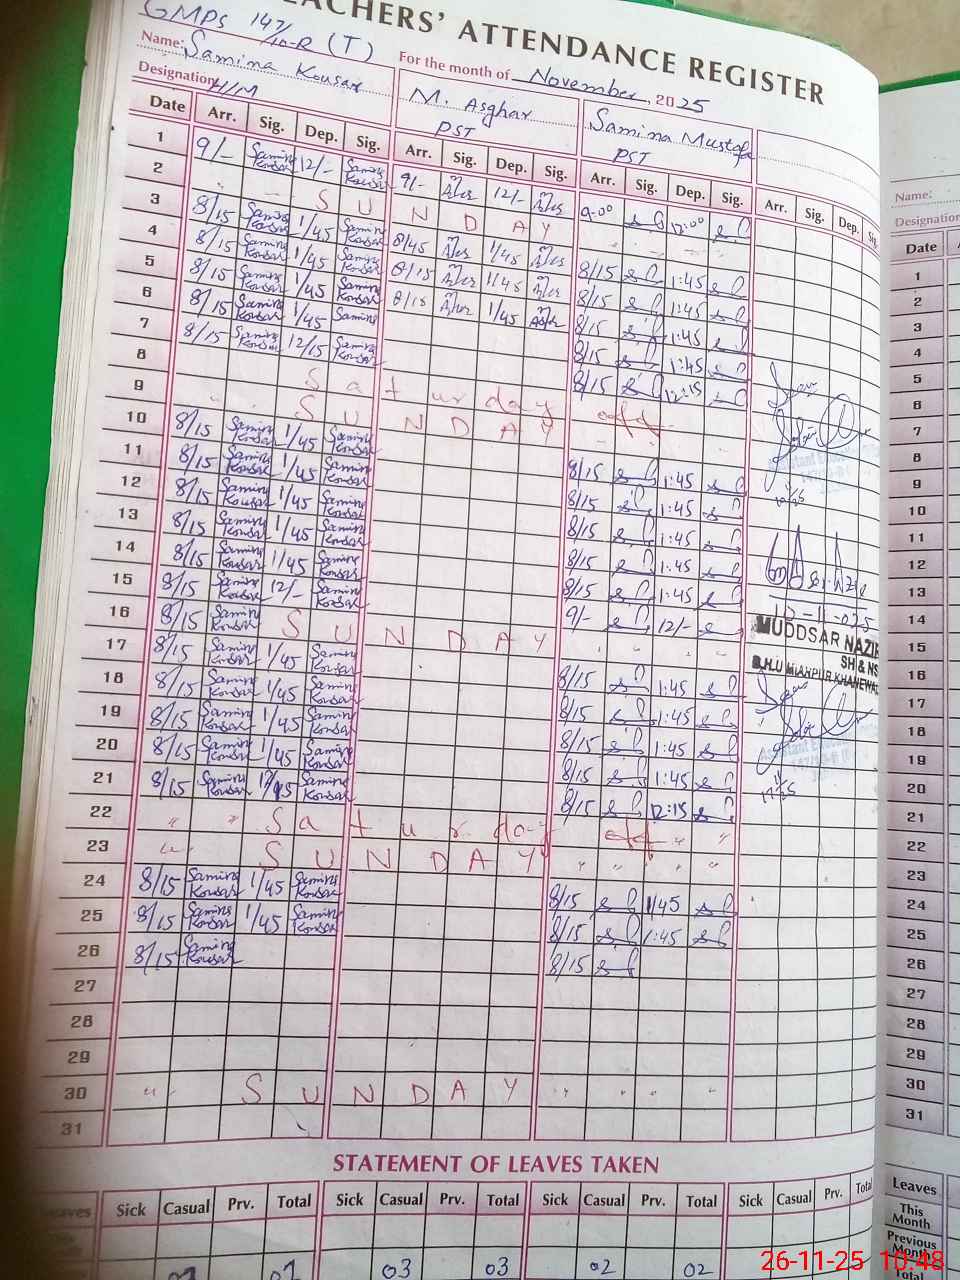 GMPS 147/10-R (T)
TEACHERS' ATTENDANCE REGISTER
Name: Samina Kousar
For the month of November, 2025
Designation H/M
M. Asghar PST
Samina Mustafa PST
Date Arr. Sig. Dep. Sig. Arr. Sig. Dep. Sig. Arr. Sig. Dep. Sig. Arr. Sig. Dep. Sig.
1 9/- Samina Kousar 12/- Samina Kousar 9/- 12/- 9-00 12:00
2 SUNDAY
3 8/15 Samina Kousar 1/45 Samina Kousar 8/45 1/45 8/15 1:45
4 8/15 Samina Kousar 1/45 Samina Kousar 8/15 1/45 8/15 1:45
5 8/15 Samina Kousar 1/45 Samina Kousar 8/15 1/45 8/15 1:45
6 8/15 Samina Kousar 1/45 Samina 8/15 1:45
7 8/15 Samina Kousar 12/15 Samina Kousar 8/15 12:15
8 Saturday off
9 SUNDAY
10 8/15 Samina Kousar 1/45 Samina Kousar 8/15 1:45
11 8/15 Samina Kousar 1/45 Samina Kousar 8/15 1:45
12 8/15 Samina Kousar 1/45 Samina Kousar 8/15 1:45
13 8/15 Samina Kousar 1/45 Samina Kousar 8/15 1:45
14 8/15 Samina Kousar 1/45 Samina Kousar 8/15 1:45
15 8/15 Samina Kousar 12/- Samina Kousar 9/- 12/-
16 8/15 Samina Kousar SUNDAY
17 8/15 Samina Kousar 1/45 Samina Kousar 8/15 1:45
18 8/15 Samina Kousar 1/45 Samina Kousar 8/15 1:45
19 8/15 Samina Kousar 1/45 Samina Kousar 8/15 1:45
20 8/15 Samina Kousar 1/45 Samina Kousar 8/15 1:45
21 8/15 Samina Kousar Samina Kousar 8/15 12:15
22 " " Saturday off " "
23 " SUNDAY " " " "
24 8/15 Samina Kousar 1/45 Samina Kousar 8/15 1/45
25 8/15 Samina Kousar 1/45 Samina Kousar 8/15 1:45
26 8/15 Samina Kousar 8/15
27
28
29
30 " SUNDAY " " " "
31
12-11-025
MUDDSAR NAZIR
SH & NS
B.H.U MIANPUR KHANEWAL
STATEMENT OF LEAVES TAKEN
Leaves Sick Casual Prv. Total Sick Casual Prv. Total Sick Casual Prv. Total Sick Casual Prv. Total
03 03 02 02
Name:
Designation
Date
1
2
3
4
5
6
7
8
9
10
11
12
13
14
15
16
17
18
19
20
21
22
23
24
25
26
27
28
29
30
31
Leaves
This Month
Previous Month
Total
26-11-25 10:48